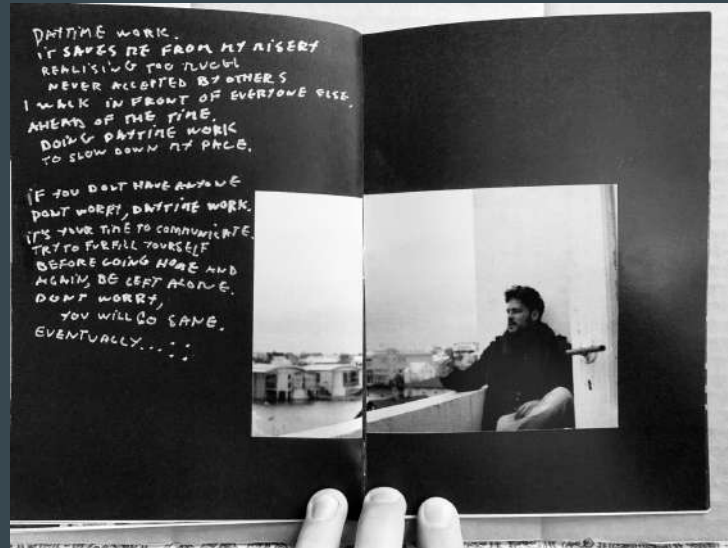 DAYTIME WORK.
IT SAVES ME FROM MY MISERY
REALISING TOO MUCH
NEVER ACCEPTED BY OTHERS
I WALK IN FRONT OF EVERYONE ELSE.
AHEAD OF THE TIME.
DOING DAYTIME WORK
TO SLOW DOWN MY PACE.
IF YOU DONT HAVE ANYONE
DONT WORRY, DAYTIME WORK.
IT'S YOUR TIME TO COMMUNICATE.
TRY TO FURFILL YOURSELF
BEFORE GOING HOME AND
AGAIN, BE LEFT ALONE.
DONT WORRY,
YOU WILL GO SANE.
EVENTUALLY...::